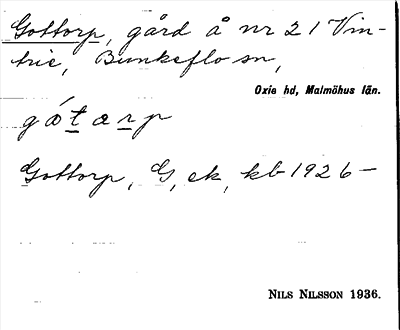 Gottorp, gård å nr 21 Vin-
trie, Bunkeflo sn,
Oxie hd, Malmöhus län.
gátarp
Gottorp, G, ek, kb 1926–
NILS NILSSON 1936.